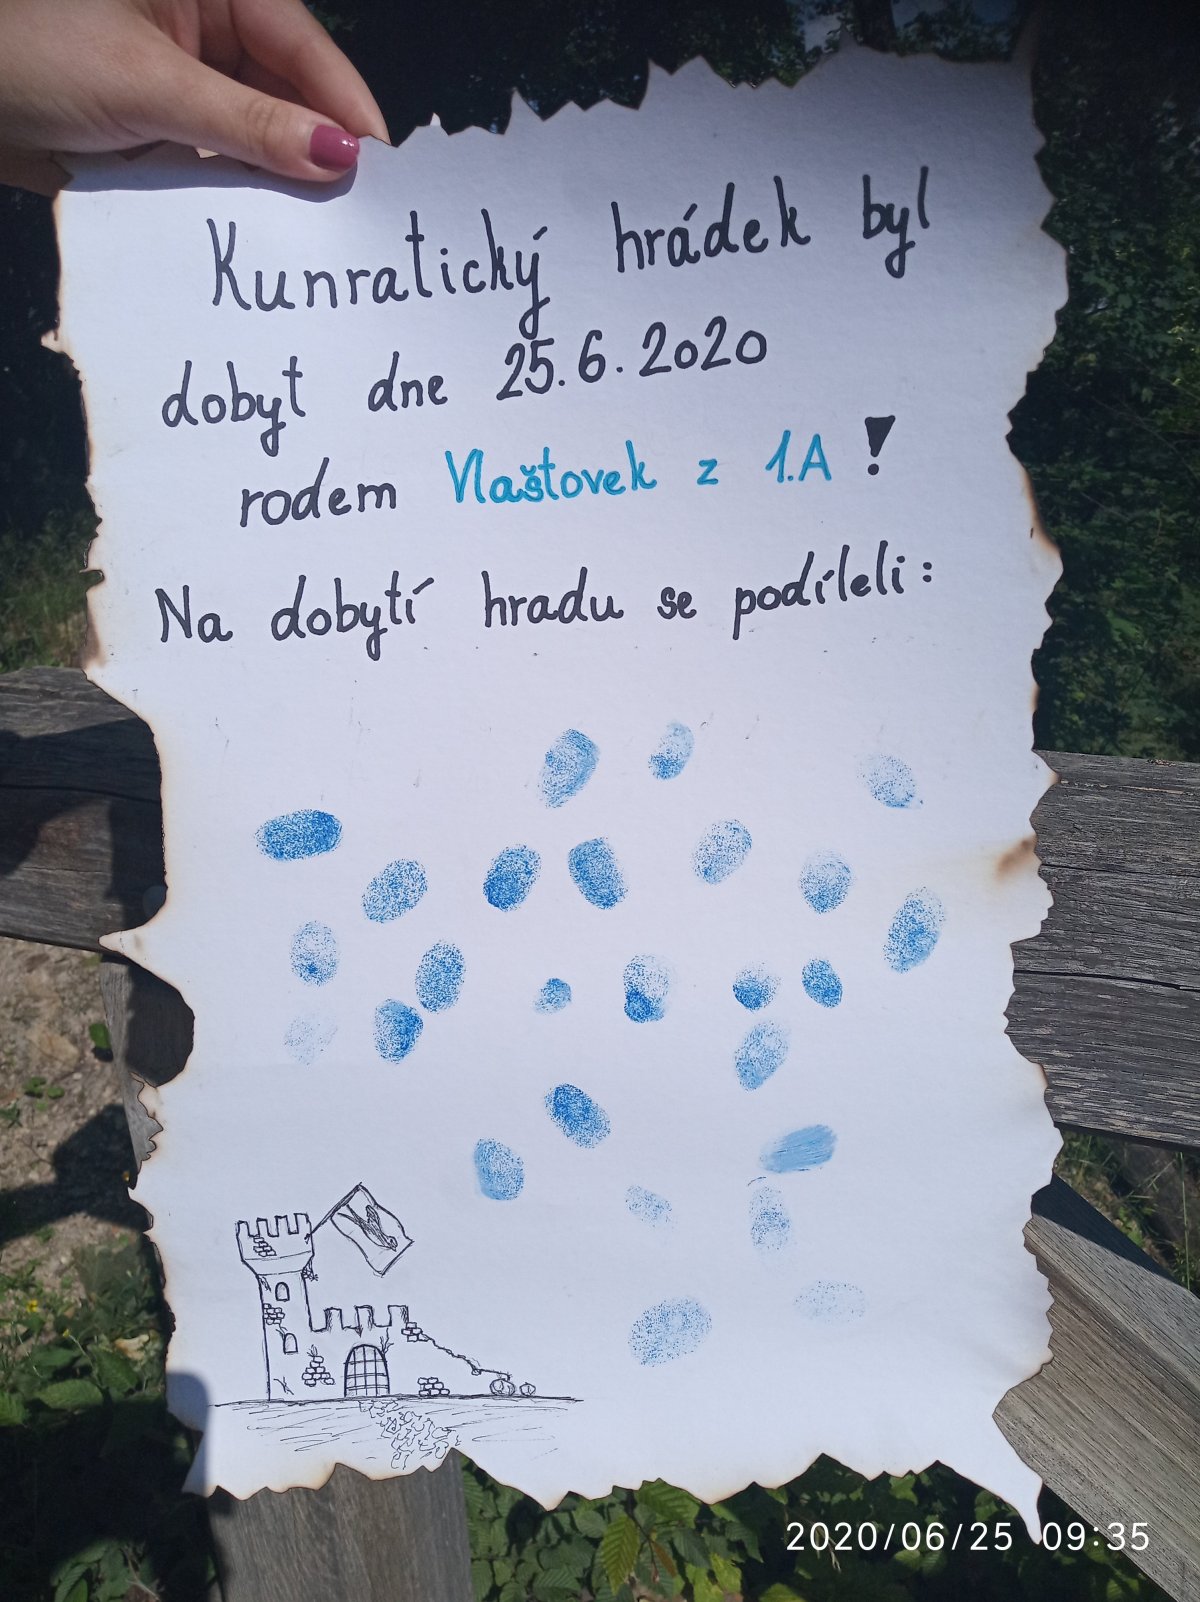 Kunratický hrádek byl
dobyt dne 25.6.2020
rodem Vlaštovek z 1.A!
Na dobytí hradu se podíleli:
2020/06/25 09:35